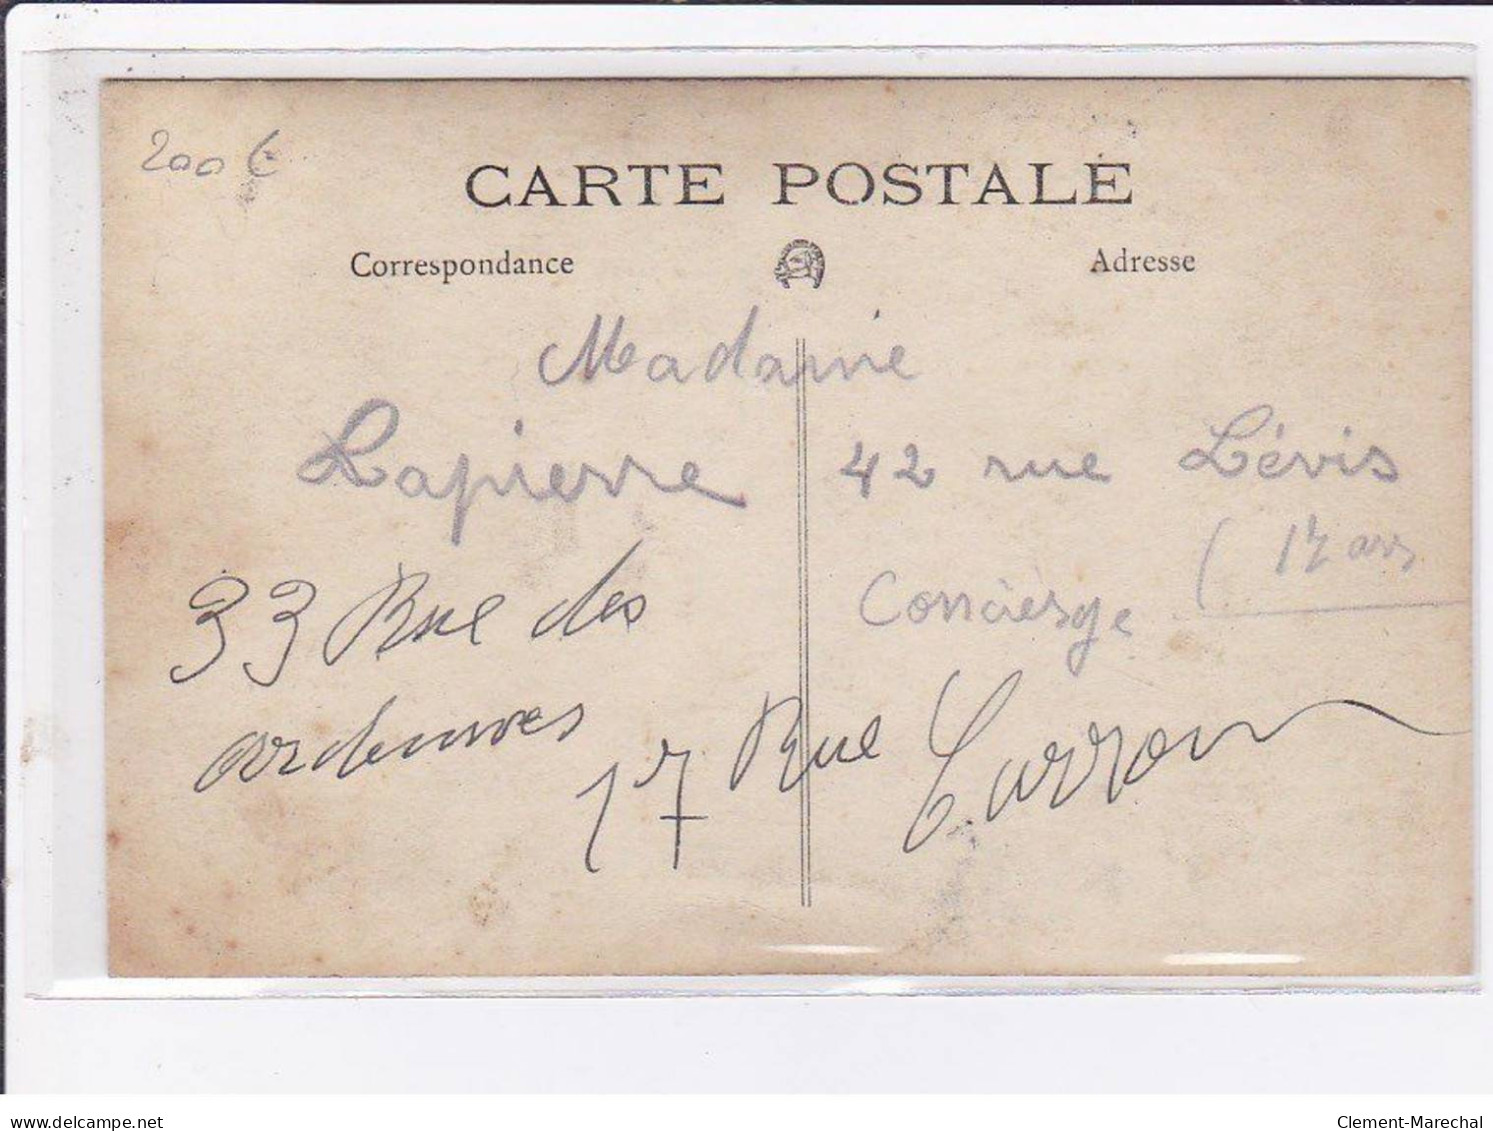 200 €
CARTE POSTALE
Correspondance
Adresse
Madame
Lapierre 42 rue Lévis
(17 arr
Concierge
33 Rue des
ardennes
17 Rue
delcampe.net
Clement-Marechal